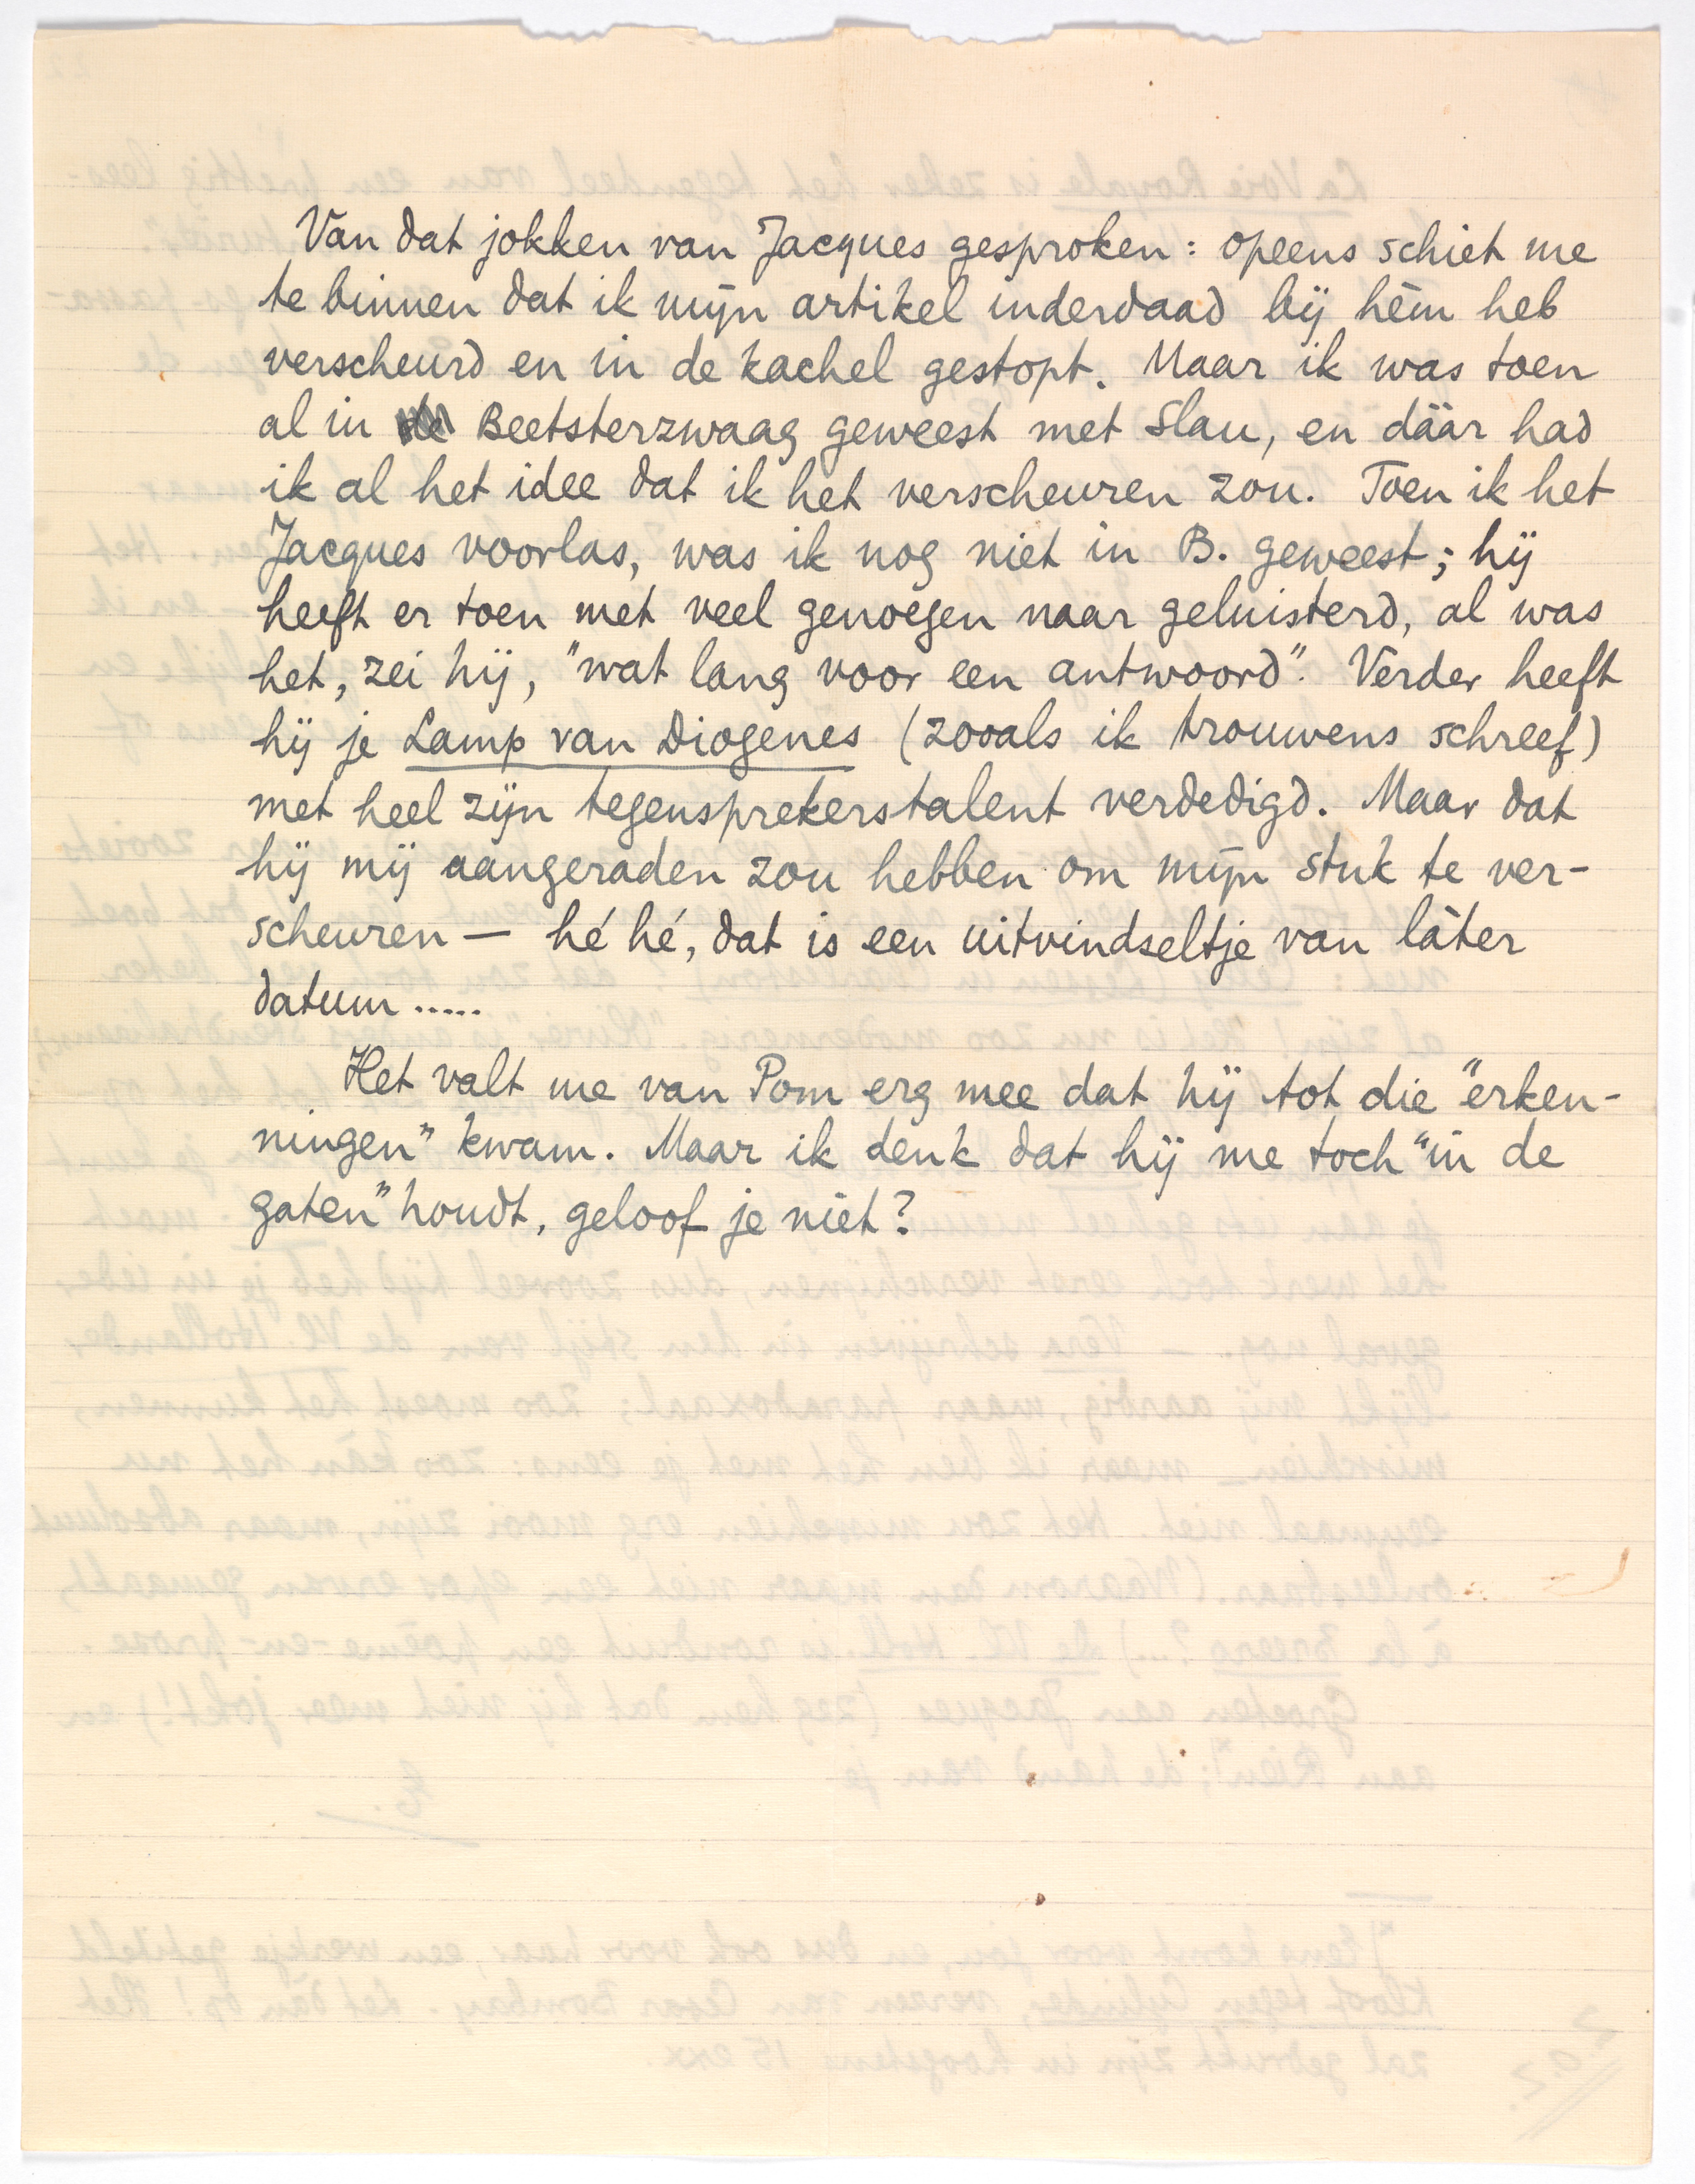 Van dat jokken van Jacques gesproken: opeens schiet me
te binnen dat ik mijn artikel inderdaad bij hèm heb
verscheurd en in de kachel gestopt. Maar ik was toen
al in de Beetsterzwaag geweest met Slau, en dáár had
ik al het idee dat ik het verscheuren zou. Toen ik het
Jacques voorlas, was ik nog niet in B. geweest; hij
heeft er toen met veel genoegen naar geluisterd, al was
het, zei hij, "wat lang voor een antwoord". Verder heeft
hij je Lamp van Diogenes (zooals ik trouwens schreef)
met heel zijn tegensprekerstalent verdedigd. Maar dat
hij mij aangeraden zou hebben om mijn stuk te ver-
scheuren — hé hé, dat is een uitvindseltje van làter
datum .....
Het valt me van Pom erg mee dat hij tot die "erken-
ningen" kwam. Maar ik denk dat hij me toch "in de
gaten" houdt, geloof je niet?